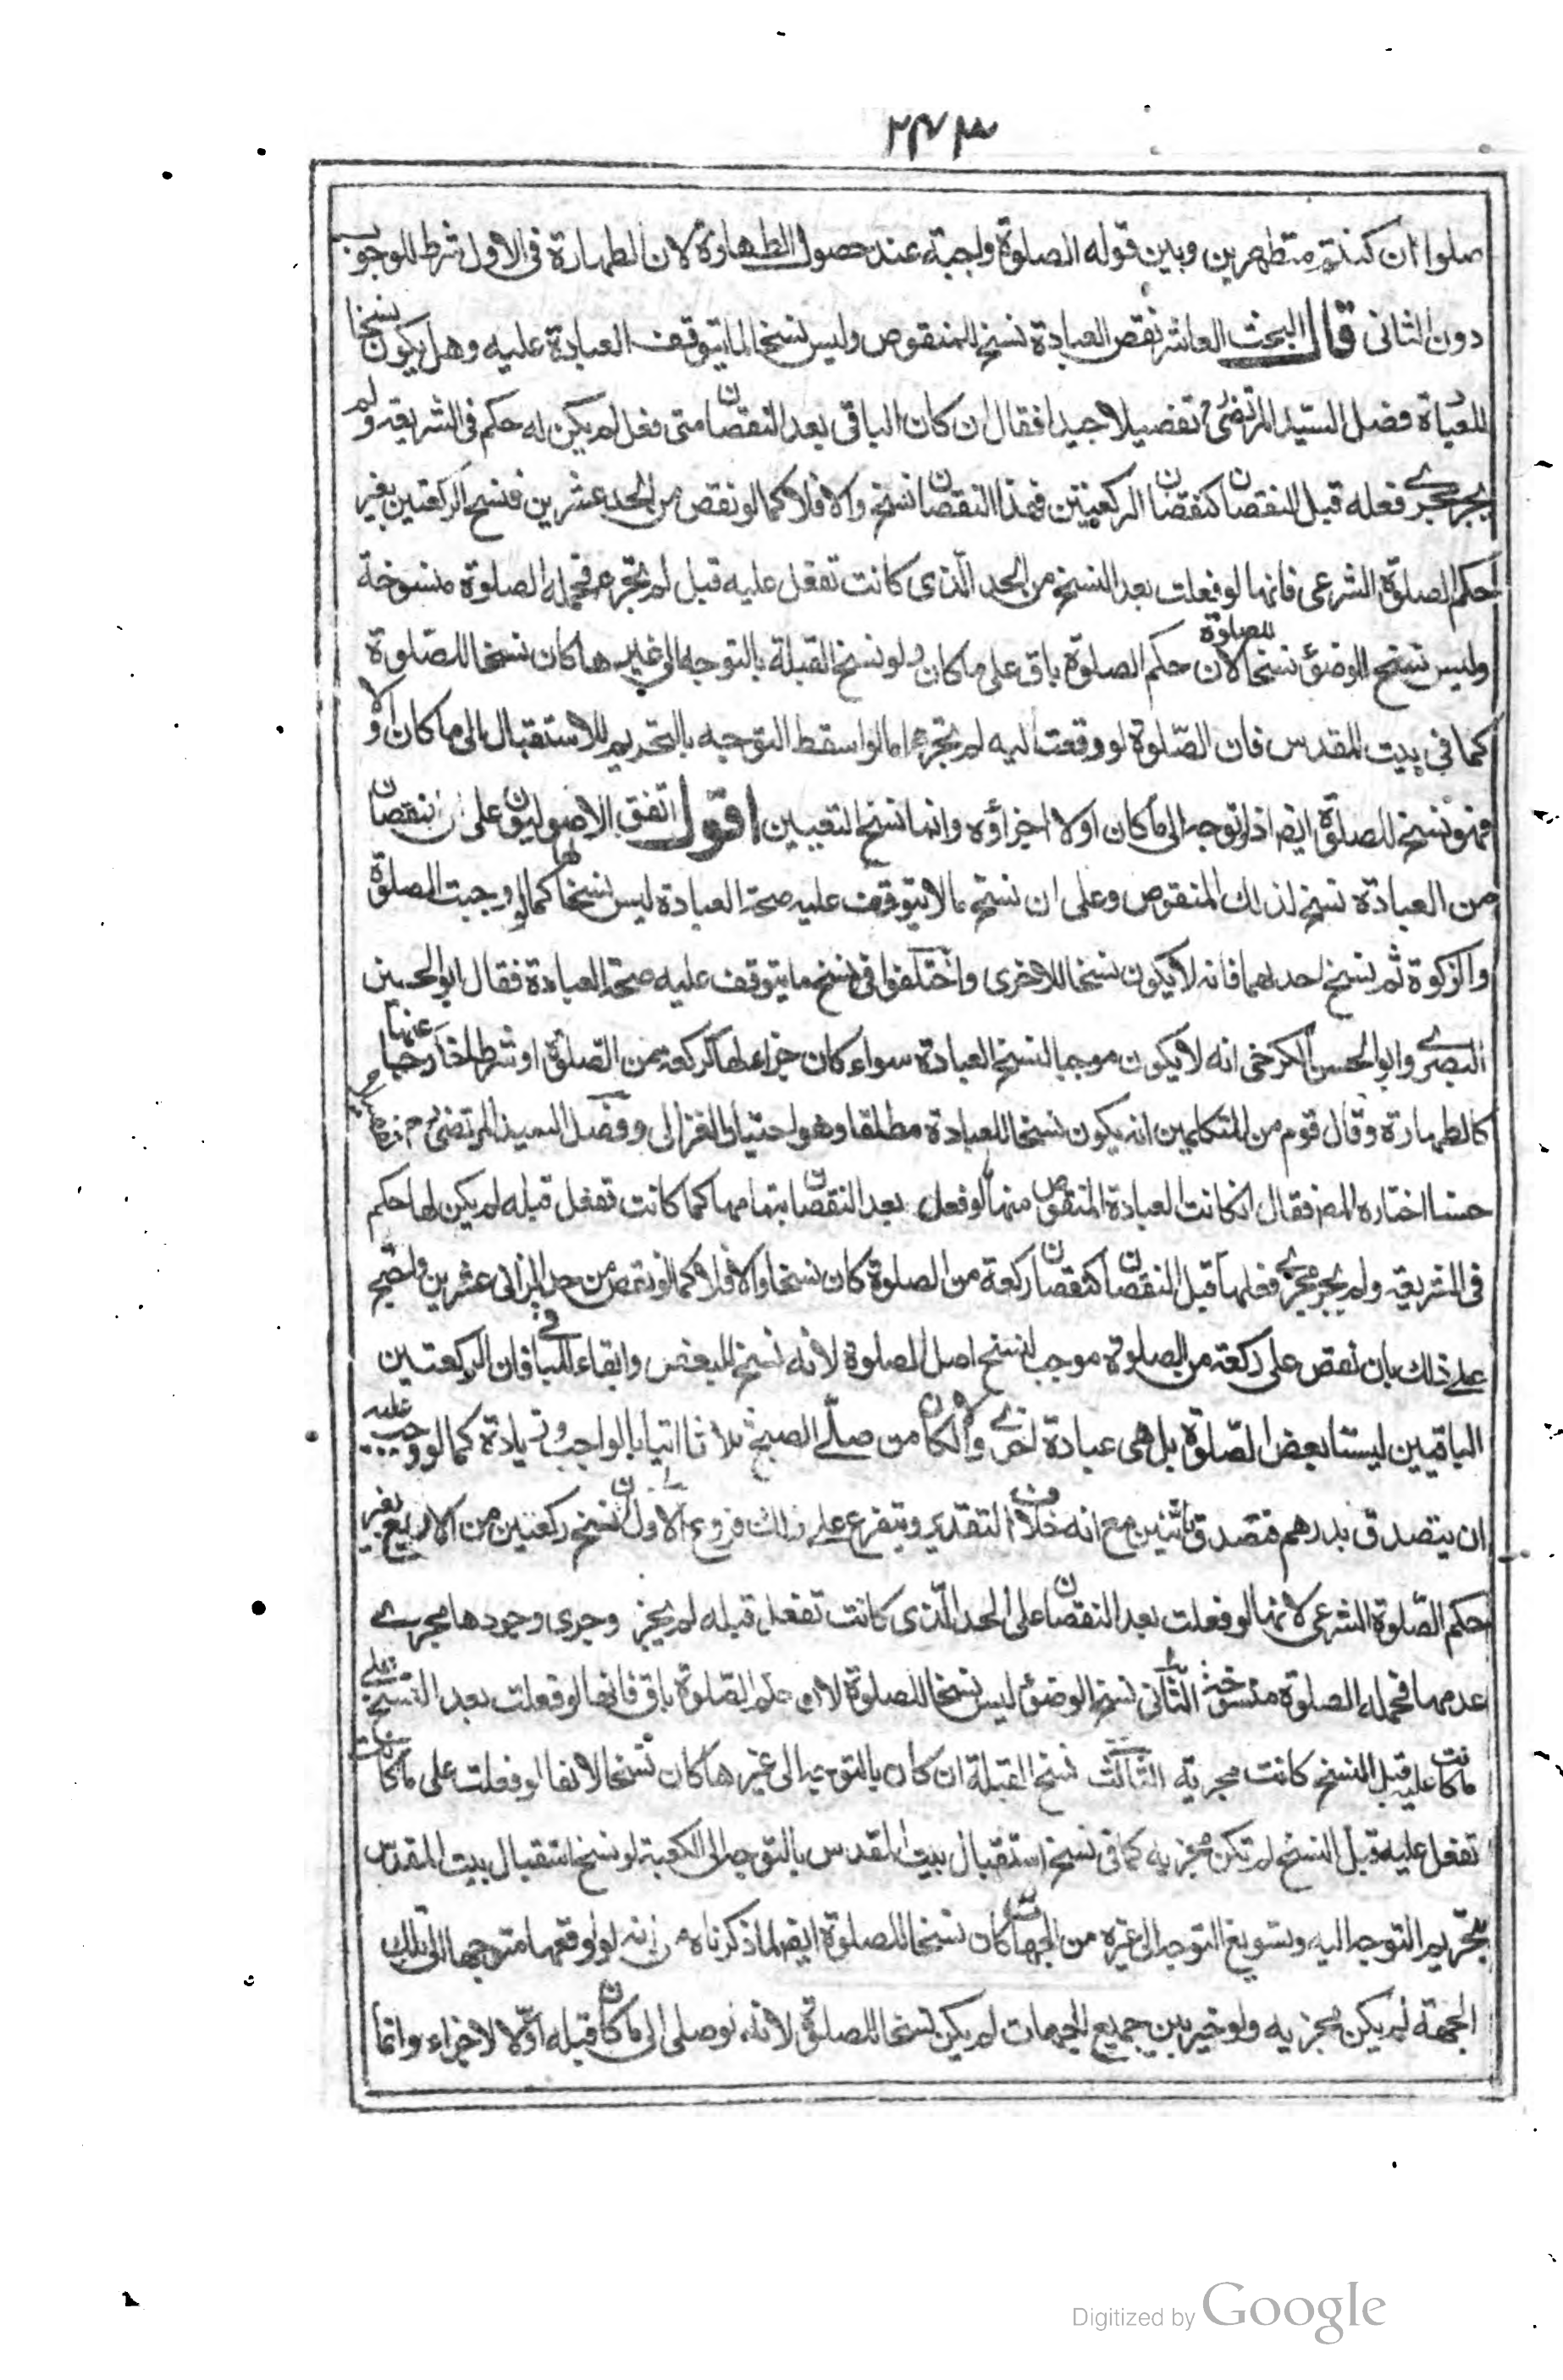 ٢٤٣
صلوا ان كنتم متطهرين وبين قوله الصلوة واجبة عند حصول الطهارة لان الطهارة فى الاول شرط للوجوب
دون الثانى قال البحث العاشر نقص العبادة نسخ للمنقوص وليس نسخا لما يتوقف العبادة عليه وهل يكون نسخا
للعبادة فصل السيد المرتضى تفصيلا جيدا فقال ان كان الباقى بعد النقصان متى فعل لم يكن له حكم فى الشريعة ولم
يجر مجرى فعله قبل النقصان كنقصان الركعتين فهذا النقصان نسخ والا فلا كما لو نقص من الحد عشرين فنسخ الركعتين يغير
حكم الصلوة الشرعى فانها لو فعلت بعد النسخ من الحد الذى كانت تفعل عليه قبل لم تجز فجملة الصلوة منسوخة
وليس نسخ الوضوء نسخا للصلوة لان حكم الصلوة باق على ما كان ولو نسخ القبلة بالتوجه الى غيرها كان نسخا للصلوة
كما فى بيت المقدس فان الصلوة لو وقعت اليه لم تجز اما لو اسقط التوجه بالتحريم للاستقبال الى ما كان اولا
فهو نسخ للصلوة ايضا اذ لو توجه الى ما كان اولا اجزاؤه وانما نسخ التعيين اقول اتفق الاصوليون على ان نقصان
من العبادة نسخ لذلك المنقوص وعلى ان نسخ ما لا يتوقف عليه صحة العبادة ليس نسخا لها كما لو وجبت الصلوة
والزكوة ثم نسخ احدهما فانه لا يكون نسخا للاخرى واختلفوا فى نسخ ما يتوقف عليه صحة العبادة فقال ابو الحسين
البصرى وابو الحسن الكرخى انه لا يكون موجبا لنسخ العبادة سواء كان جزاء لها كركعة من الصلوة او شرطا خارجا عنها
كالطهارة وقال قوم من المتكلمين انه يكون نسخا للعبادة مطلقا وهو اختيار الغزالى وفصل السيد المرتضى
حسنا اختاره المص فقال ان كانت العبادة المنقوص منها لو فعل بعد النقصان بتمامها كما كانت تفعل قبله لم يكن لها حكم
فى الشريعة ولم يجر مجرى فعلها قبل النقصان كنقصان ركعة من الصلوة كان نسخا والا فلا كما لو نقص من حد الزانى عشرين واحتج
على ذلك بان نقص على ركعة من الصلوة موجب لنسخ اصل الصلوة لانه نسخ للبعض وابقاء للباقى فان الركعتين
الباقيين ليستا بعض الصلوة بل هى عبادة اخرى والا لكان من صلى الصبح ثلاثا اتيا بالواجب وزيادة كما لو وجب عليه
ان يتصدق بدرهم فتصدق باثنين مع انه خلاف التقدير ويتفرع على ذلك فروع الاول نسخ ركعتين من الاربع يغير
حكم الصلوة الشرعى لانها لو فعلت بعد النقصان على الحد الذى كانت تفعل قبله لم يجز وجرى وجودها مجرى
عدمها فجملة الصلوة منسوخة الثانى نسخ الوضوء ليس نسخا للصلوة لان حكم الصلوة باق فانها لو فعلت بعد النسخ على
ما كانت عليه قبل النسخ كانت مجزية الثالث نسخ القبلة ان كان بالتوجه الى غيرها كان نسخا لانها لو فعلت على ما كانت
تفعل عليه قبل النسخ لم تكن مجزية كما فى نسخ استقبال بيت المقدس بالتوجه الى الكعبة لو نسخ استقبال بيت المقدس
بتحريم التوجه اليه وتسويغ التوجه الى غيره من الجهات كان نسخا للصلوة ايضا لما ذكرناه من انه لو اوقعها متوجها الى تلك
الجهة لم يكن مجزية ولو خير بين جميع الجهات لم يكن نسخا للصلوة لانه لو صلى الى ما كان قبله اولا لاجزاء وانما
Digitized by Google